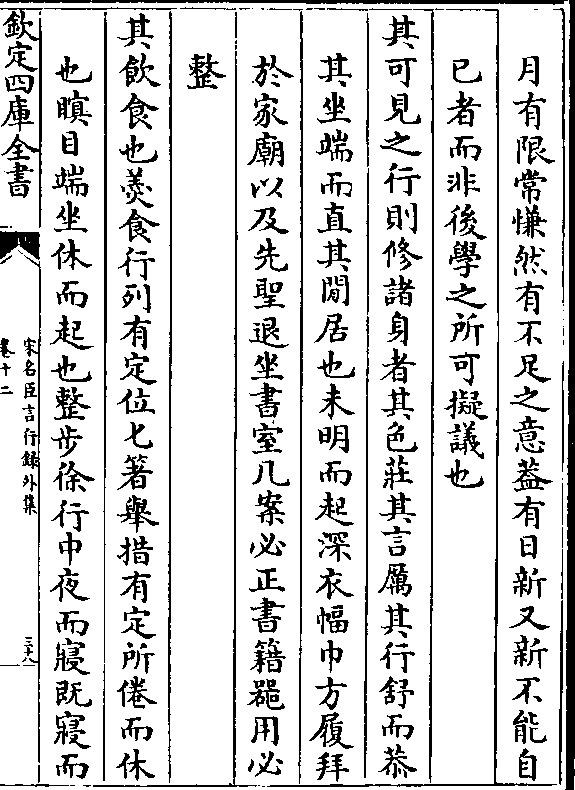 月有限常慊然有不足之意葢有日新又新不能自
已者而非後學之所可擬議也
其可見之行則修諸身者其色莊其言厲其行舒而恭
其坐端而直其閒居也未明而起深衣幅巾方履拜
於家廟以及先聖退坐書室几案必正書籍器用必
整
其飲食也羮食行列有定位匕箸舉措有定所倦而休
也瞑目端坐休而起也整步徐行中夜而寢既寢而
欽定四庫全書
宋名臣言行錄外集
卷十二
三十八